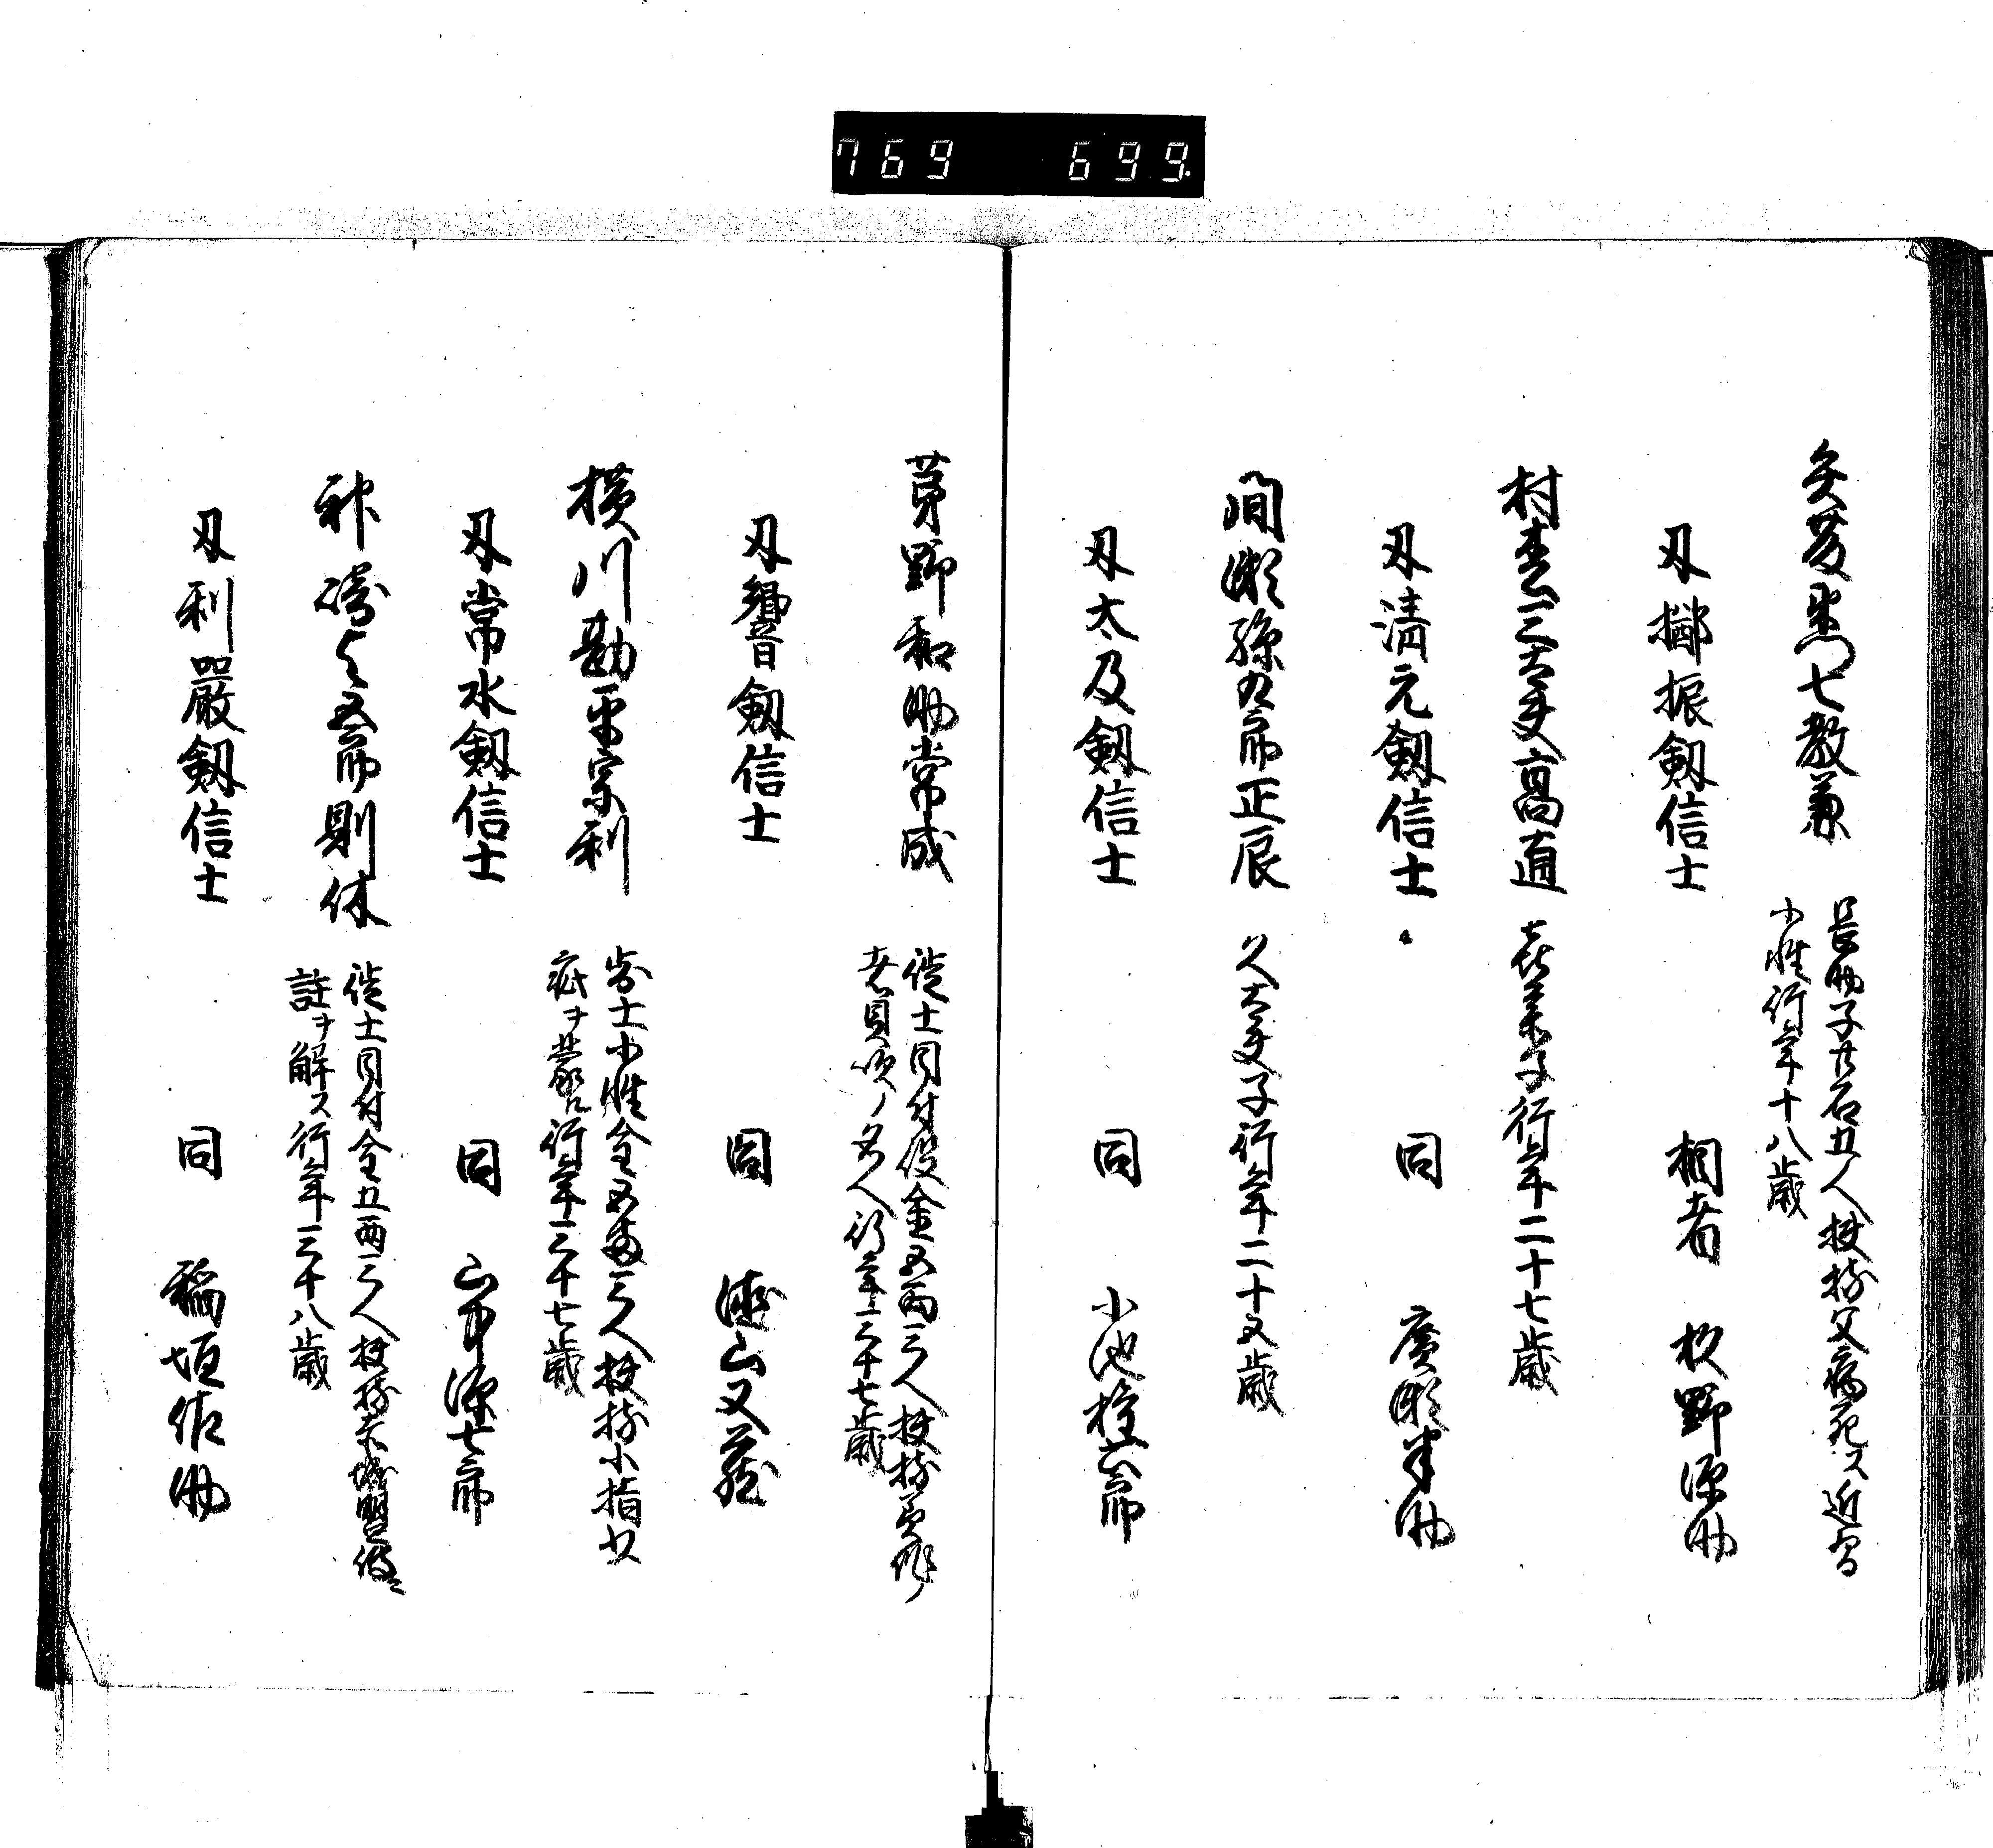 769 699
矢頭右衛門七教兼
長助子廿石五人扶持父病死ス近習
小性行年十八歳
刃擲振劔信士
相者 杉野源助
村松三太夫高直
喜兵衛子行年二十七歳
刃清元劔信士
同 廣瀬半助
間瀬孫九郎正辰
久太夫子行年二十三歳
刃太及劔信士
同 小池権六郎
茅野和助常成
徒士目付役金五両三人扶持
行年三十七歳
刃響劔信士
同 徳山又蔵
横川勘平宗利
歩士小性金五両三人扶持小指少
疵ヲ蒙ル行年三十七歳
刃常水劔信士
同 山中源七郎
神崎与五郎則休
徒士目付金五両三人扶持
註ヲ解ス行年三十八歳
刃利嚴劔信士
同 稲垣佐助